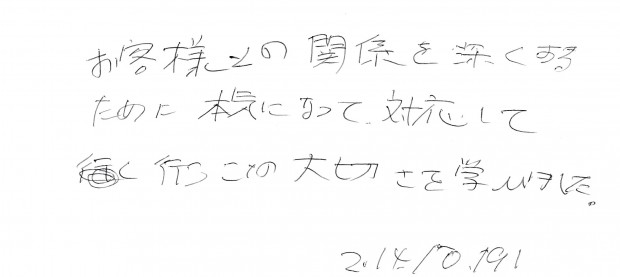 お客様との関係を深くする
ために本気になって対応して
く行うことの大切さを学びました。
2014.10.19